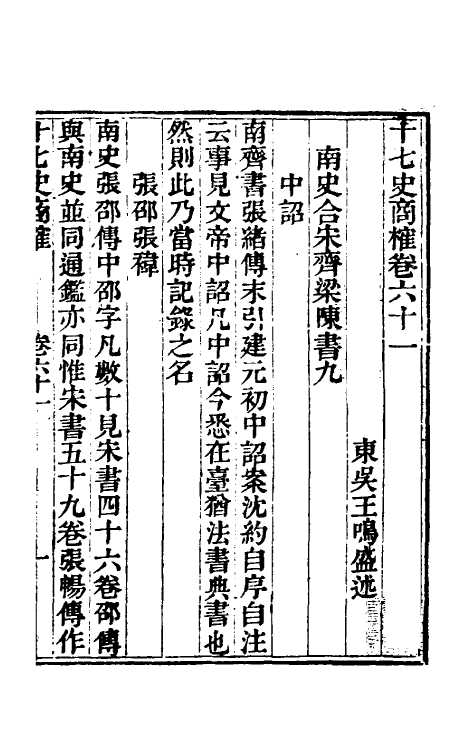 十七史商榷卷六十一
東吳王鳴盛述
南史合宋齊梁陳書九
中詔
南齊書張緒傳末引建元初中詔案沈約自序自注
云事見文帝中詔凡中詔今悉在臺猶法書典書也
然則此乃當時記錄之名
張邵張禕
南史張邵傳中邵字凡數十見宋書四十六卷邵傳
與南史並同通鑑亦同惟宋書五十九卷張暢傳作
十七史商榷 卷六十一 一